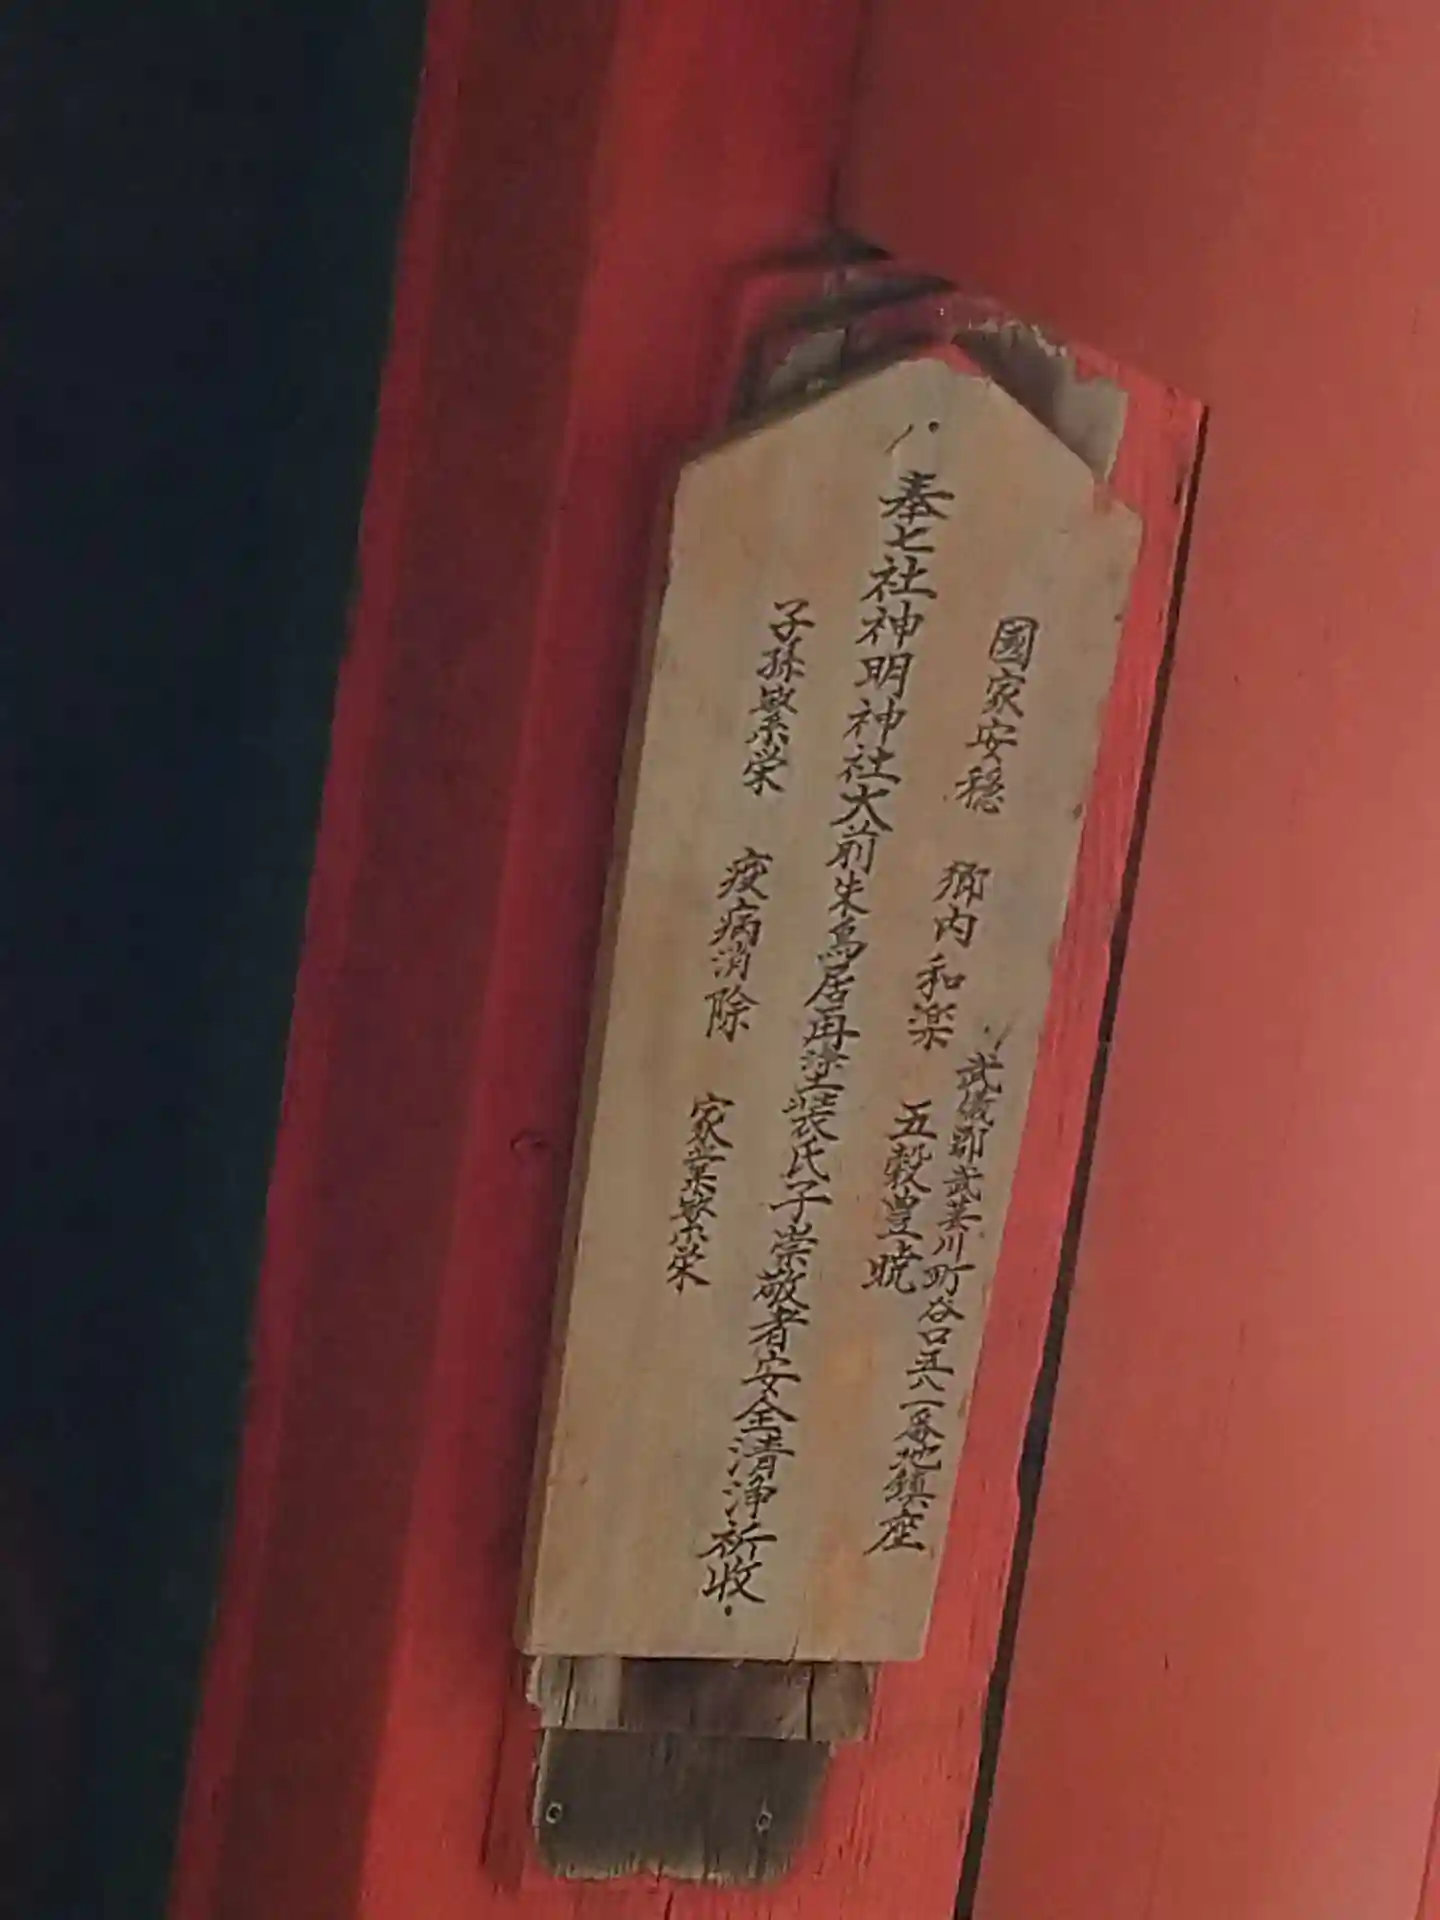 武儀郡武芸川町谷口五八一番地鎮座
國家安穏 郷内和楽 五穀豊暁
奉七社神明神社大前朱鳥居再塗装氏子崇敬者安全清浄祈收
子孫繁栄 疫病消除 家業繁栄